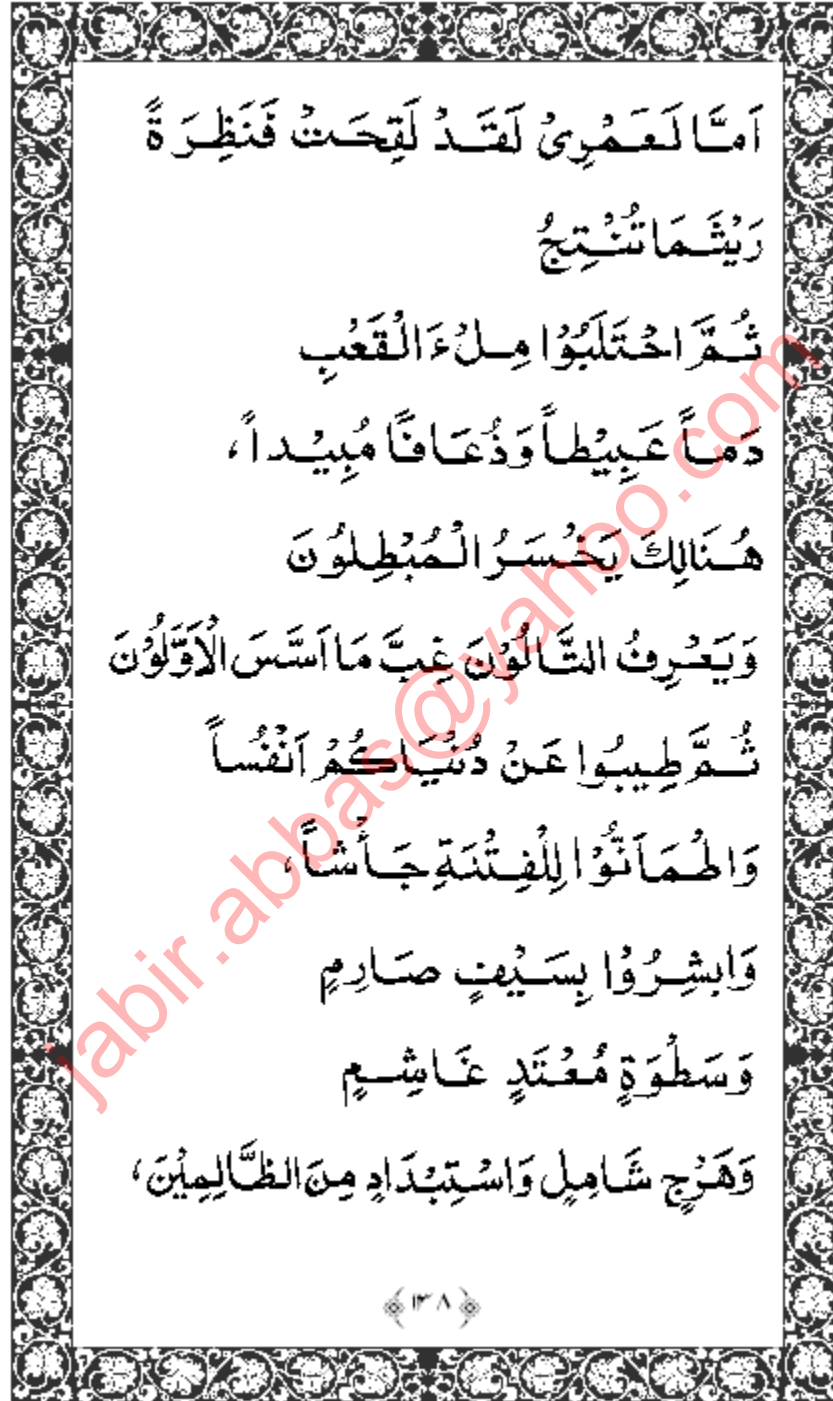 اَمَّا لَعَمْرِىْ لَقَدْ لَقِحَتْ فَنَظِرَةً
رَيْثَمَا تُنْتِجُ
ثُمَّ احْتَلَبُوْا مِلْءَ الْقَعْبِ
دَماً عَبِيْطاً وَذُعَافًا مُبِيْداً،
هُنَالِكَ يَخْسَرُ الْمُبْطِلُوْنَ
وَيَعْرِفُ التَّالُوْنَ غِبَّ مَا اَسَّسَ الْاَوَّلُوْنَ
ثُمَّ طِيبُوا عَنْ دُنْيَاكُمْ اَنْفُساً
وَاطْمَاَنُّوْا لِلْفِتْنَةِ جَأْشاً،
وَابشِرُوْا بِسَيْفٍ صَارِمٍ
وَسَطْوَةٍ مُعْتَدٍ غَاشِمٍ
وَهَرْجٍ شَامِلٍ وَاسْتِبْدَادٍ مِنَ الظَّالِمِيْنَ،
﴿۱۳۸﴾
jabir.abbas@yahoo.com